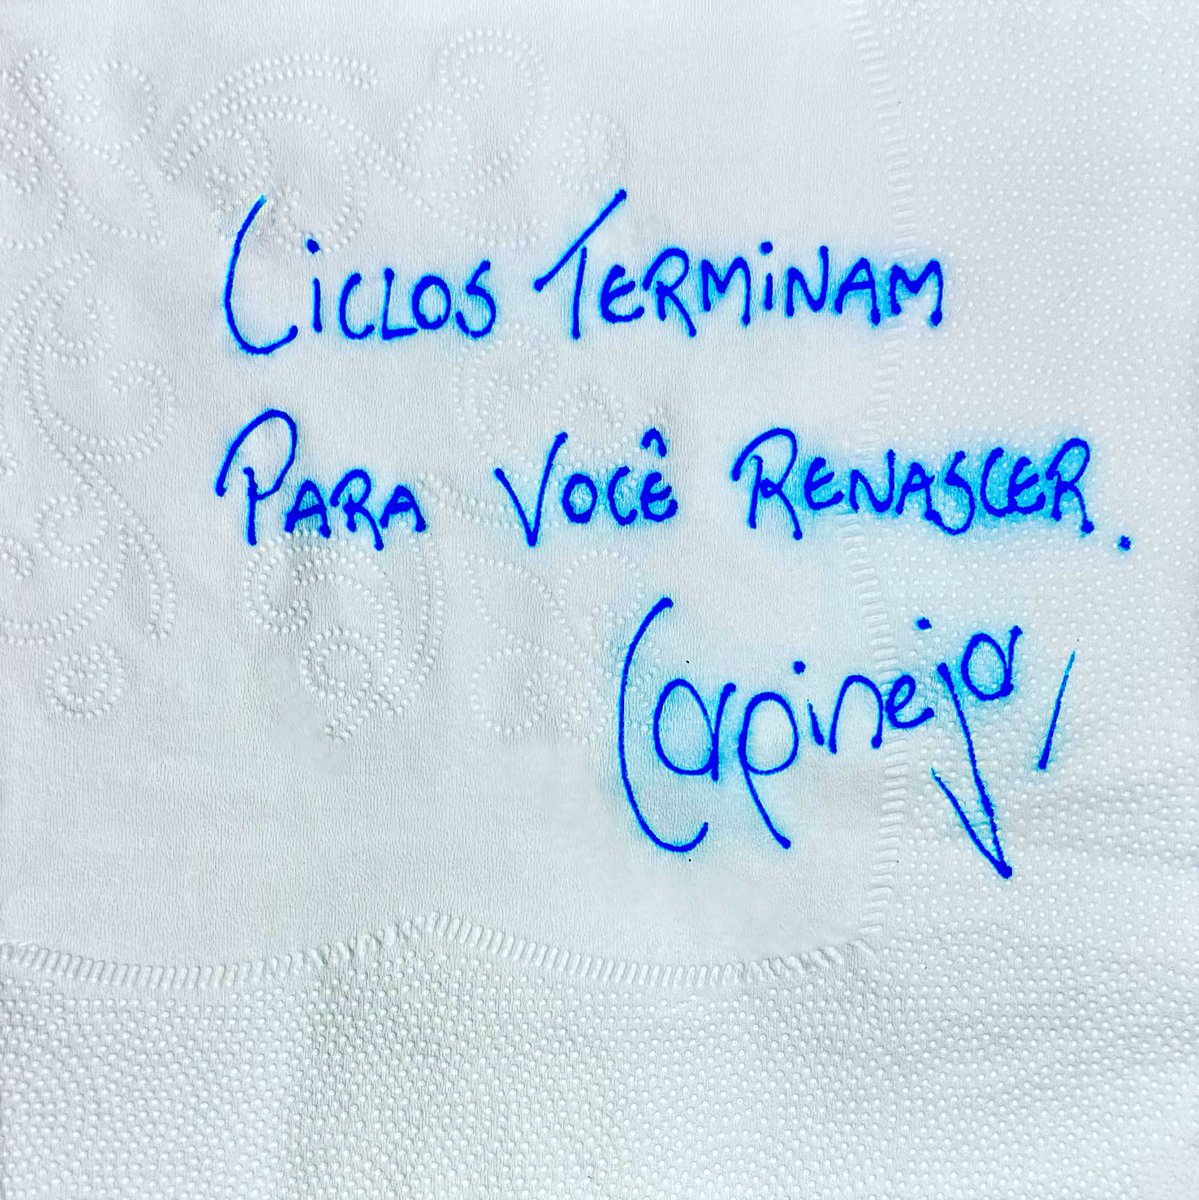 Ciclos Terminam
Para você renascer.
Carpinejar